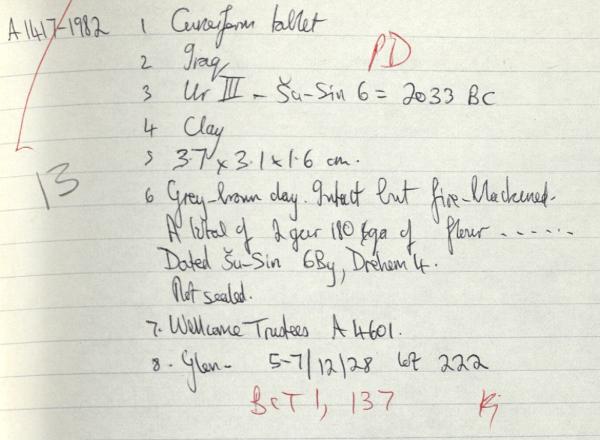 A1417-1982 1 Cuneiform tablet
PD
2 Iraq
3 Ur III - Šu-Sin 6 = 2033 BC
4 Clay
5 3.7 x 3.1 x 1.6 cm.
13
6 Grey-brown clay. Intact but fire-blackened.
A total of 2 gur 180 qa of flour ------
Dated Šu-Sin 6By, Drehem 4.
Not sealed.
7. Wellcome Trustees A 4601.
8. Glen- 5-7/12/28 lot 222
BCT 1, 137